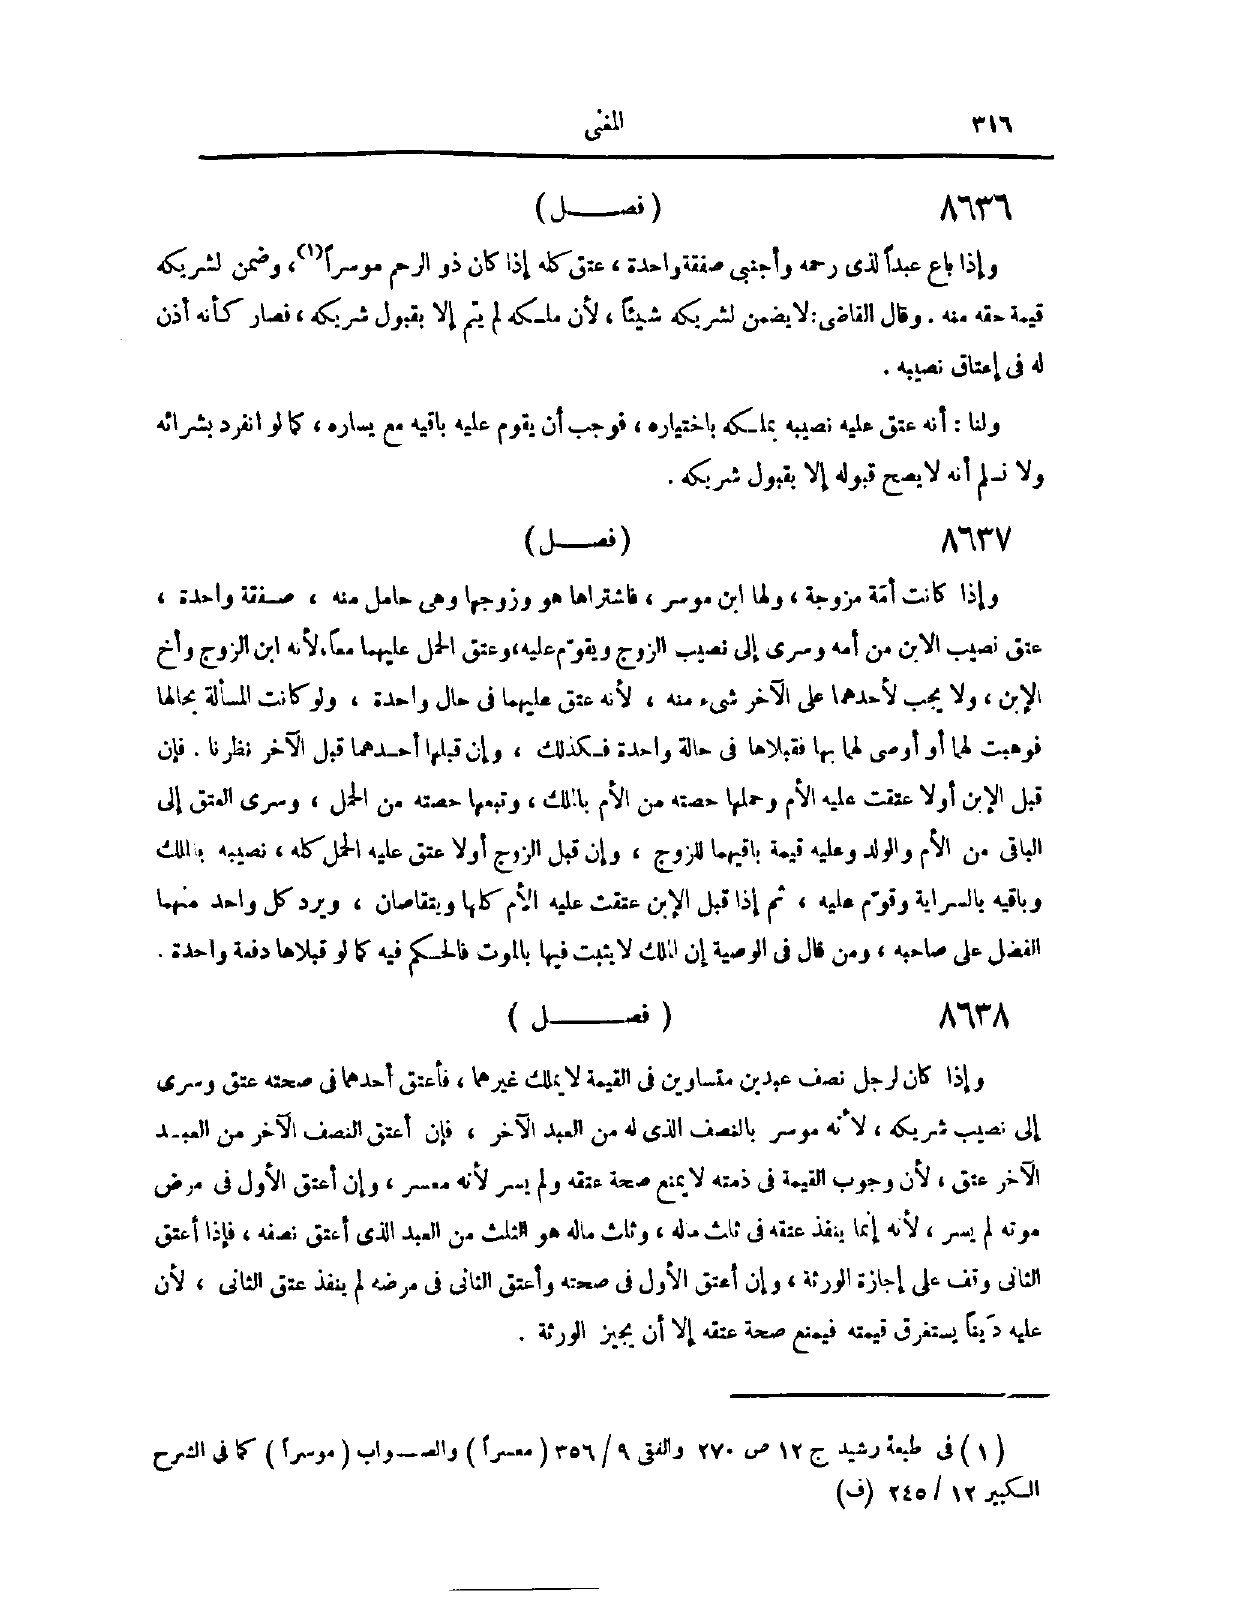 ٣١٦ المغنى
٨٦٣٦ (فصــل)
وإذا باع عبداً لذى رحمه وأجنبي صفقة واحدة ، عتق كله إذا كان ذو الرحم موسراً(١)، وضمن لشريكه
قيمة حقه منه . وقال القاضى: لا يضمن لشريكه شيئاً ، لأن ملـكه لم يتم إلا بقبول شريكه ، فصار كأنه أذن
له فى إعتاق نصيبه .
ولنا : أنه عتق عليه نصيبه بملـكه باختياره ، فوجب أن يقوم عليه باقيه مع يساره ، كما لو انفرد بشرائه
ولا نسلم أنه لا يصح قبوله إلا بقبول شريكه .
٨٦٣٧ (فصــل)
وإذا كانت أمَة مزوجة ، ولها ابن موسر ، فاشتراها هو وزوجها وهى حامل منه ، صـفقة واحدة ،
عتق نصيب الابن من أمه وسرى إلى نصيب الزوج ويقوّم عليه، وعتق الحمل عليهما معاً، لأنه ابن الزوج وأخ
الإبن ، ولا يجب لأحدهما على الآخر شىء منه ، لأنه عتق عليهما فى حال واحدة ، ولو كانت المسألة بحالها
فوهبت لهما أو أوصى لهما بها فقبلاها فى حالة واحدة فـكذلك ، وإن قبلها أحـدهما قبل الآخر نظرنا . فإن
قبل الإبن أولا عتقت عليه الأم وحملها حصته من الأم بالملك ، وتبعها حصته من الحمل ، وسرى العتق إلى
الباقى من الأم والولد وعليه قيمة باقيهما للزوج ، وإن قبل الزوج أولا عتق عليه الحمل كله ، نصيبه بالملك
وباقيه بالسراية وقوّم عليه ، ثم إذا قبل الإبن عتقت عليه الأم كلها ويتقاصان ، ويرد كل واحد منهما
الفضل على صاحبه ، ومن قال فى الوصية إن الملك لا يثبت فيها بالموت فالحـكم فيه كما لو قبلاها دفعة واحدة .
٨٦٣٨ ( فصـــل )
وإذا كان لرجل نصف عبدين متساوين فى القيمة لا يملك غيرهما ، فأعتق أحدهما فى صحته عتق وسرى
إلى نصيب شريكه ، لأنه موسر بالنصف الذى له من العبد الآخر ، فإن أعتق النصف الآخر من العبـد
الآخر عتق ، لأن وجوب القيمة فى ذمته لا يمنع صحة عتقه ولم يسر لأنه معسر ، وإن أعتق الأول فى مرض
موته لم يسر ، لأنه إنما ينفذ عتقه فى ثلث ماله ، وثلث ماله هو الثلث من العبد الذى أعتق نصفه ، فإذا أعتق
الثانى وقف على إجازة الورثة ، وإن أعتق الأول فى صحته وأعتق الثانى فى مرضه لم ينفذ عتق الثانى ، لأن
عليه دَيناً يستغرق قيمته فيمنع صحة عتقه إلا أن يجيز الورثة .
(١) فى طبعة رشيد ج ١٢ ص ٢٧٠ والفقى ٩ / ٣٥٦ ( معسراً ) والصــواب ( موسراً ) كما فى الشرح
الـكبير ١٢ / ٢٤٥ (ف)